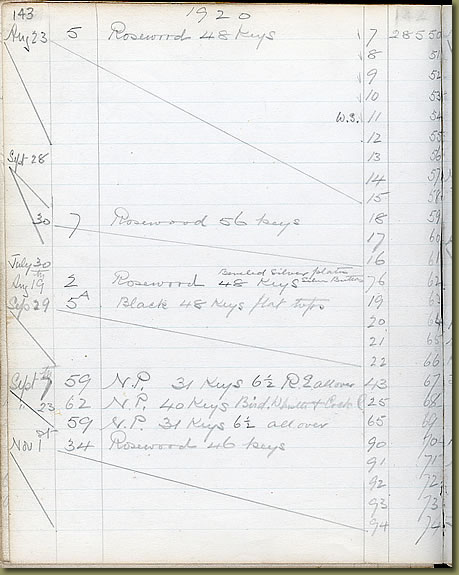 143 1920
Aug 23 5 Rosewood 48 Keys 7 28550
8 51
9 52
10 53
W.S. 11 54
12 55
Sept 28 13 56
14 57
15 58
30 7 Rosewood 56 keys 18 59
17 60
July 30 16 61
Beveled Silver plates
Aug 19th 2 Rosewood 48 Keys 76 62
Sep 29 5A Black 48 Keys flat tops 19 63
20 64
21 65
22 66
Sept 7th 59 N.P. 31 Keys 6½ allover 43 67
" 23 62 N.P. 40 Keys Bird 25 68
59 N.P. 31 Keys 6½ allover 65 69
Nov 1st 34 Rosewood 46 keys 90 70
91 71
92 72
93 73
94 74